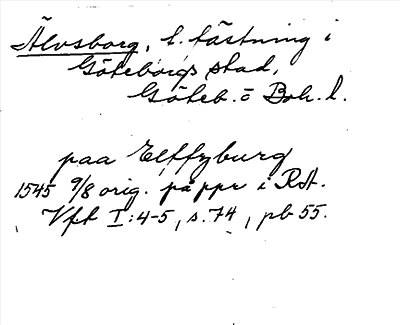 Älvsborg, f. fästning i
Göteborgs stad,
Göteb. o Boh. l.
paa Elffzburg
1545 9/8 orig. på ppr i RA.
Vft I:4-5, s. 74, pb 55.